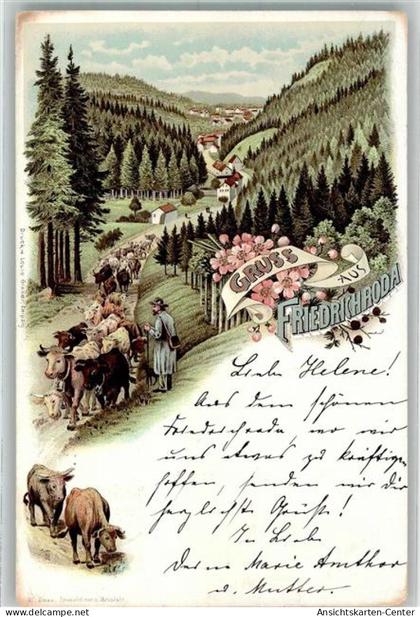 GRUSS
AUS
FRIEDRICHRODA
Liebe Helene!
Aus dem schönen
Friedrichroda wo wir
uns etwas zu kräftigen
hoffen, senden wir die
herzlichste Grüße!
In Liebe
Deine Marie Amthor
u. Mutter.
Druck v. Louis Glaser, Leipzig
Ansichtskarten-Center